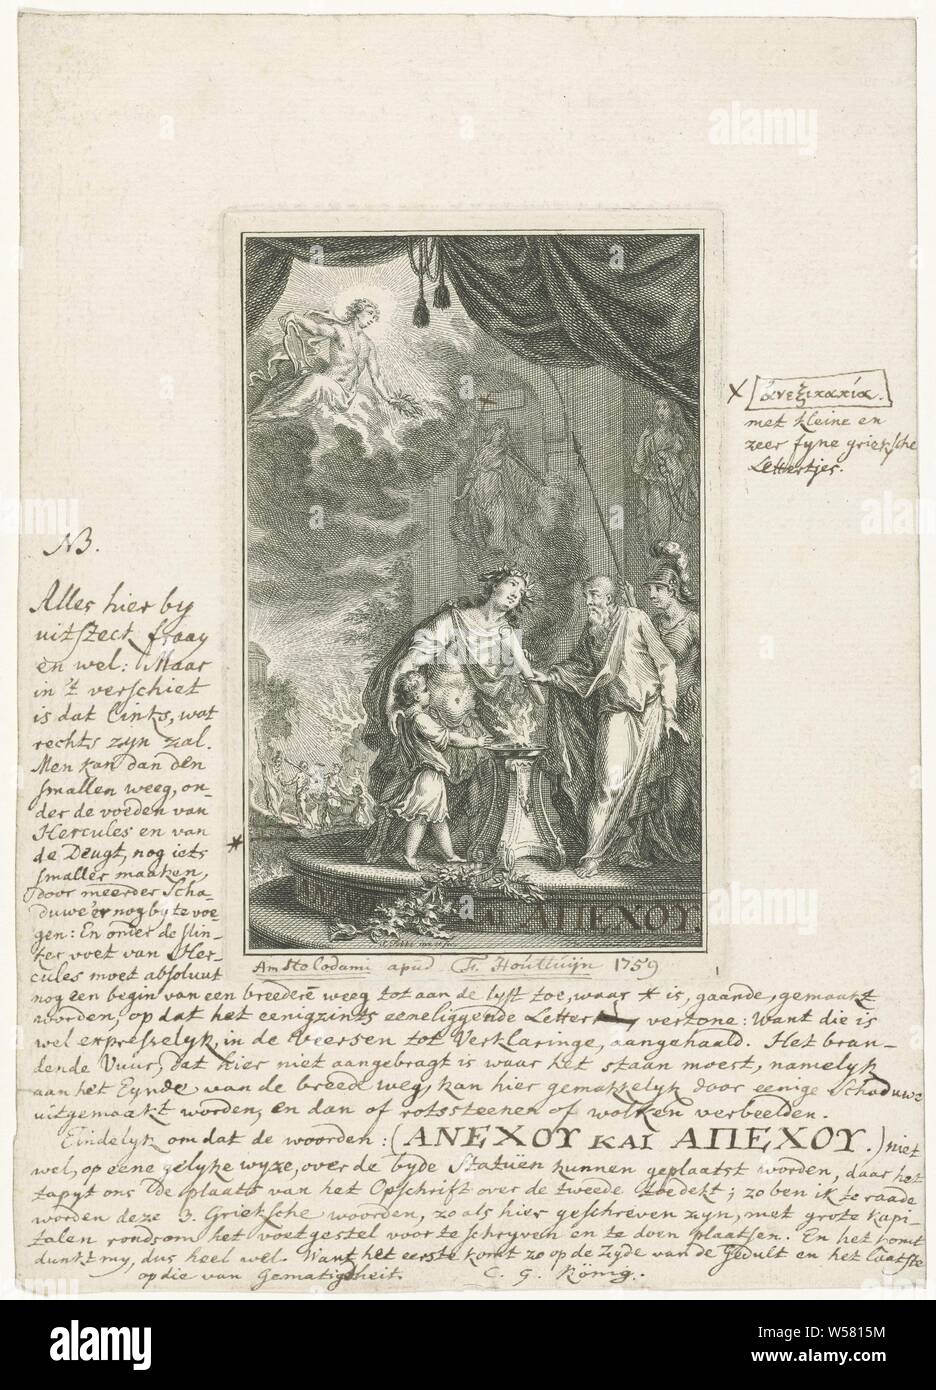 ἀνεξικακία.
met kleine en
zeer fyne grieksche
Lettertjes.
NB.
Alles hier by
uitstect fraay
en wel: Maar
in 't verschiet
is dat Links, wat
rechts zyn zal.
Men kan dan den
smallen weeg, on-
der de voeden van
Hercules en van
de Deugt, nog iets
smaller maaken,
door meerder Scha-
duwe'er nog by te voe-
gen: En onder de flin-
ker voet van Her-
cules moet absoluut
nog een begin van een breedere weeg tot aan de lyst toe, waar * is, gaande, gemaakt
worden, op dat het eenigzints eeneliggende Letter vertone: want die is
wel expresselyk, in de veersen tot Verklaringe, aangehaald. Het bran-
dende Vuur, dat hier niet aangebragt is waar het staan moest, namelyk
aan het Eynde van de breede weg, kan hier gemakkelyk door eenige Schaduwe
uitgemaakt worden, en dan of rotssteenen of wolken verbeelden.
Eindelyk om dat de woorden: (ΑΝΕΧΟΥ ΚΑΙ ΑΠΕΧΟΥ.) niet
wel, op eene gelyke wyze, over de byde Statuën kunnen geplaatst worden, daar het
tapyt ons de plaats van het Opschrift over de tweede toedekt; zo ben ik te raade
worden deze 3. Grieksche woorden, zo als hier geschreven zyn, met grote Kapi-
talen rondsom het voetgestel voor te schryven en te doen plaatsen. En het komt
dunkt my, dus heel wel. Want het eerste komt zo op de Zyde van de Gedult en het laatste
op die van Gematigdheit. C. G. König.
ΚΑΙ ΑΠΕΧΟΥ.
Amstelodami apud F. Houttuijn 1759
alamy
Image ID: W5815M
www.alamy.com